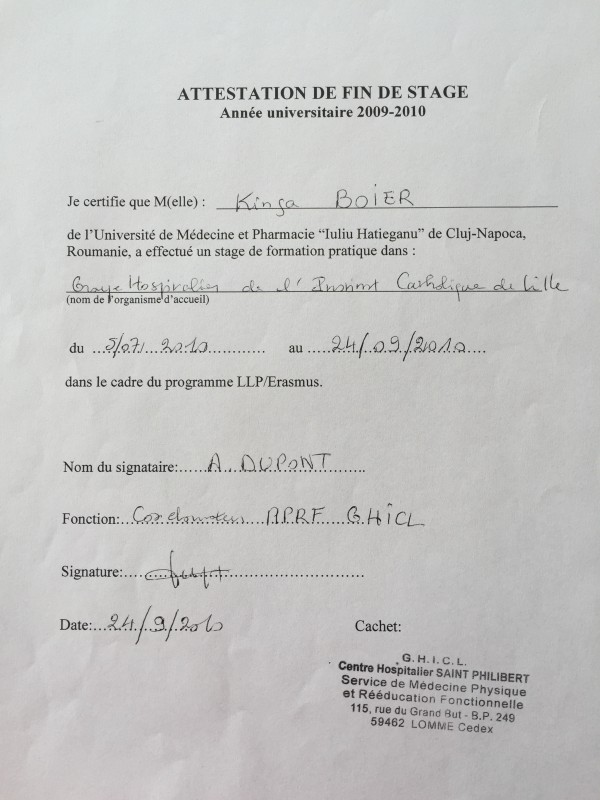 ATTESTATION DE FIN DE STAGE
Année universitaire 2009-2010
Je certifie que M(elle) : Kinga BOIER
de l'Université de Médecine et Pharmacie "Iuliu Hatieganu" de Cluj-Napoca,
Roumanie, a effectué un stage de formation pratique dans :
Hospitalier de l' Institut Catholique de Lille
(nom de l'organisme d'accueil)
du ...5/07/....2010............ au .....24/09/2010....
dans le cadre du programme LLP/Erasmus.
Nom du signataire:......A...DUPONT.......
Fonction:... GHICL
Signature:....
Date:...24/9/2010 Cachet:
G.H.I.C.L.
Centre Hospitalier SAINT PHILIBERT
Service de Médecine Physique
et Rééducation Fonctionnelle
115, rue du Grand But - B.P. 249
59462 LOMME Cedex